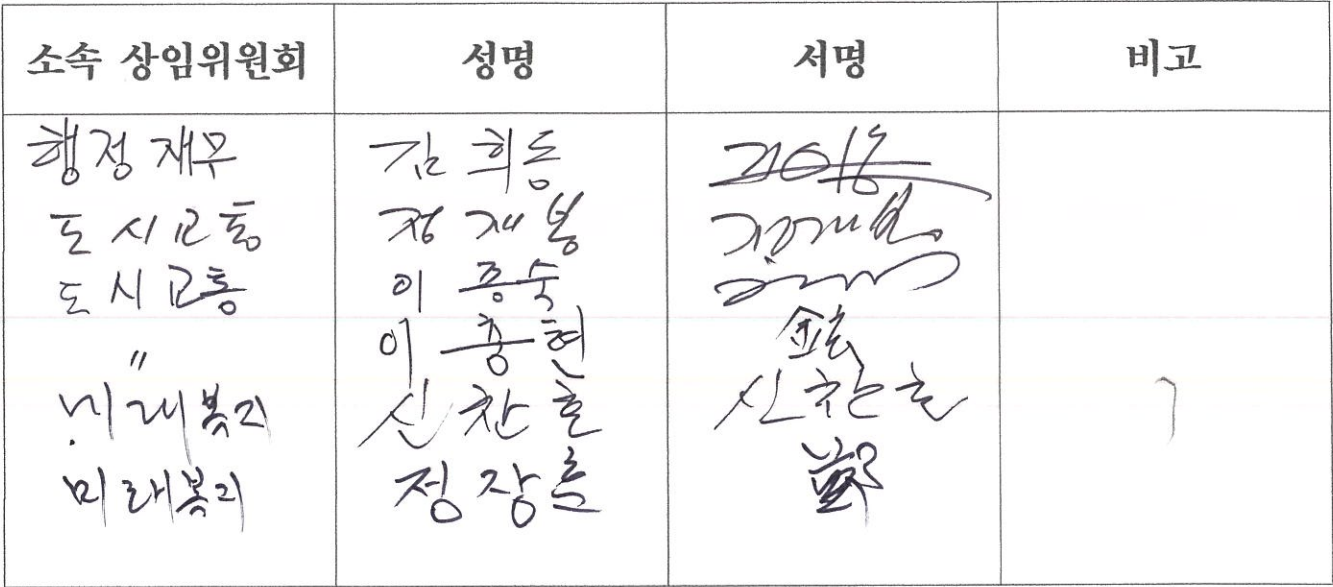 소속 상임위원회 성명 서명 비고
행정재무 김희동
도시교통 정재봉 정재봉
도시교통 이종숙
〃 이충현
미래복지 신찬호 신찬호
미래복지 정장훈